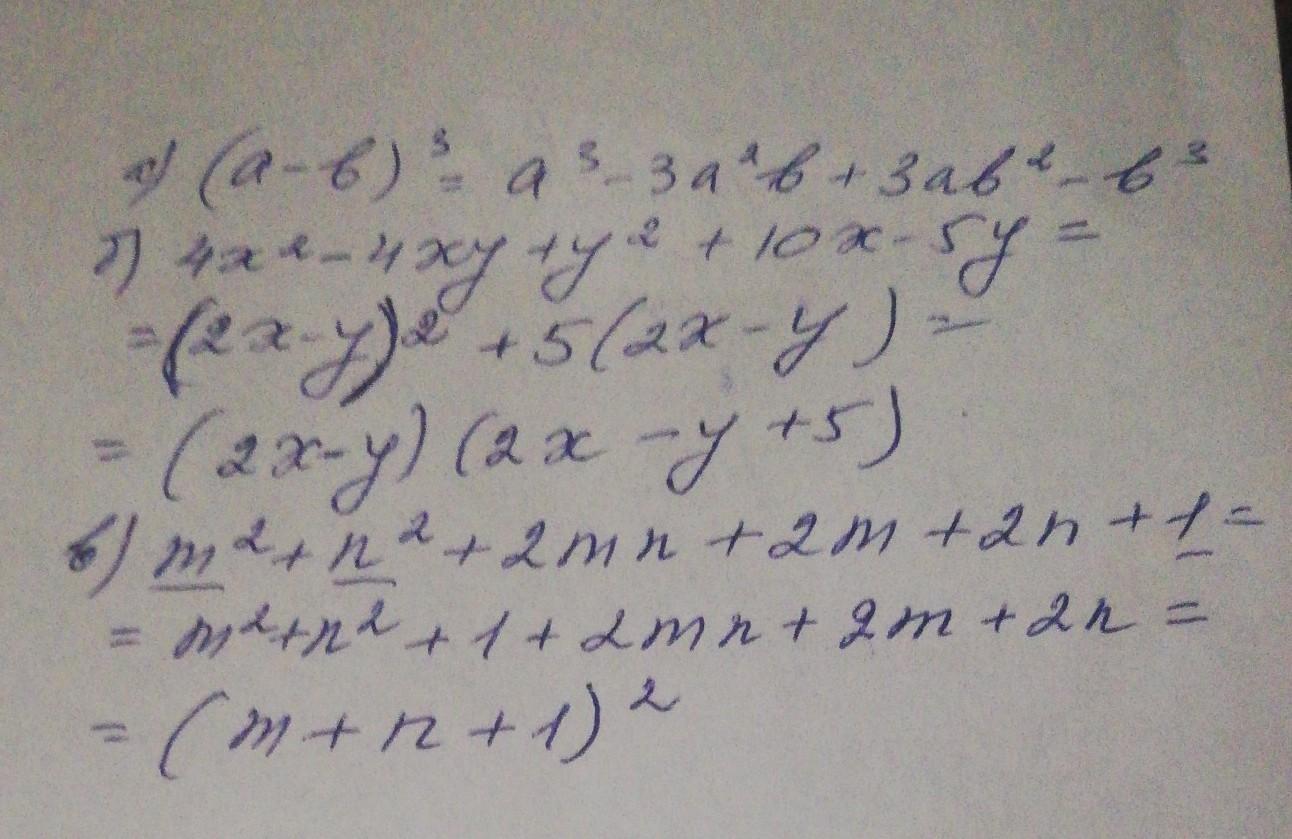 а) (a-b)³= a³-3a²b+3ab²-b³
б) 4x²-4xy+y²+10x-5y=
=(2x-y)²+5(2x-y)=
=(2x-y)(2x-y+5)
в) m²+n²+2mn+2m+2n+1=
=m²+n²+1+2mn+2m+2n=
=(m+n+1)²